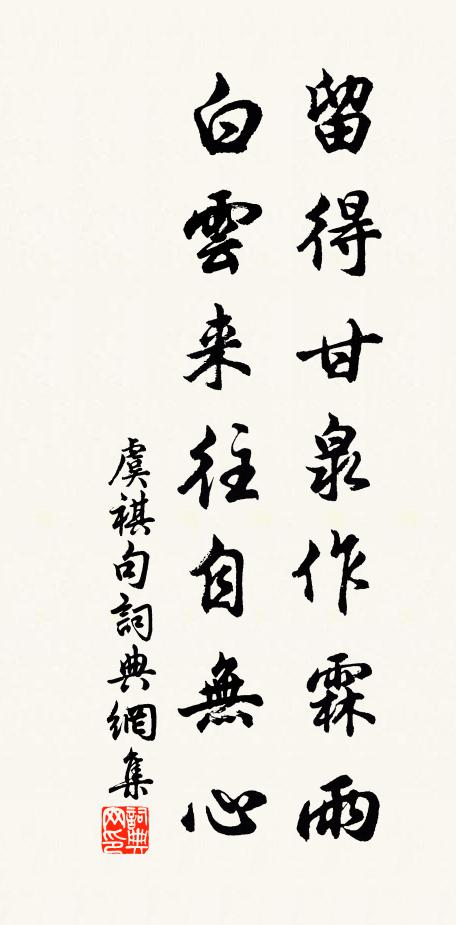 留得甘泉作霖雨
白雲来往自無心
虞祺句詞典網集
詞典网印